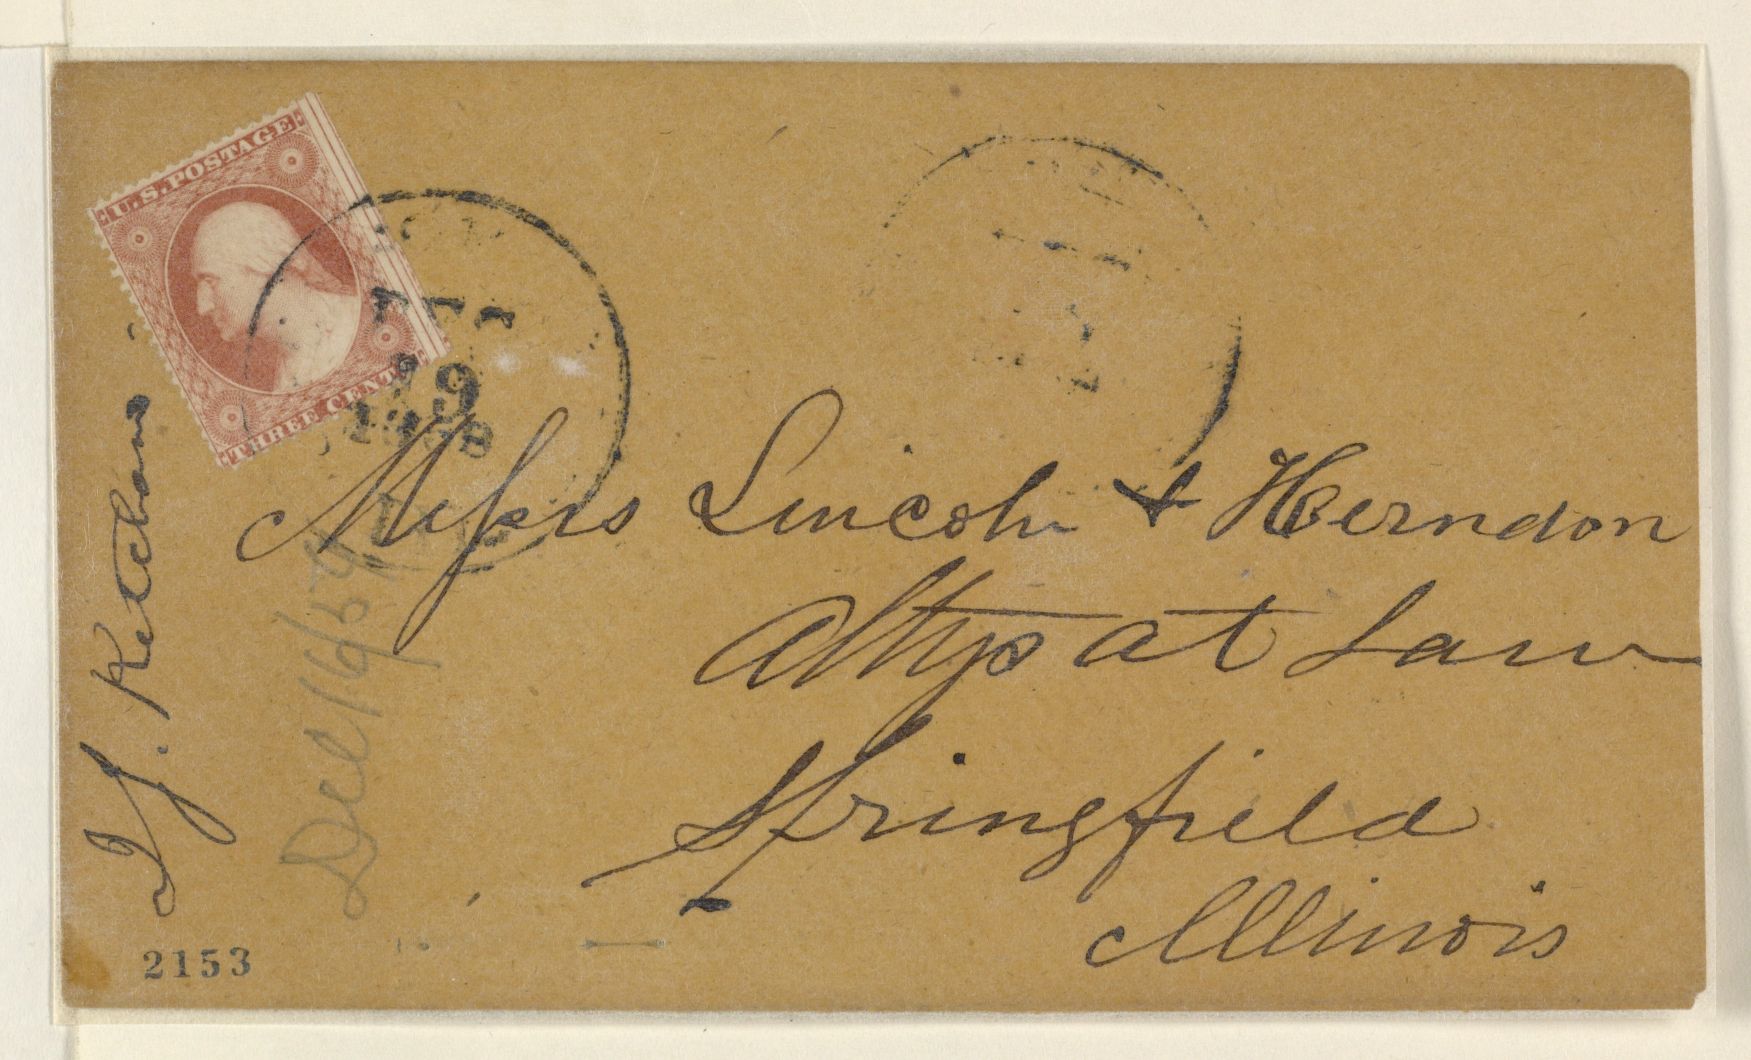 U.S. POSTAGE
THREE CENTS
9
1858
Messrs Lincoln & Herndon
Attys at Law
Springfield
Illinois
J. Ketcham
Dec 16/58
2153